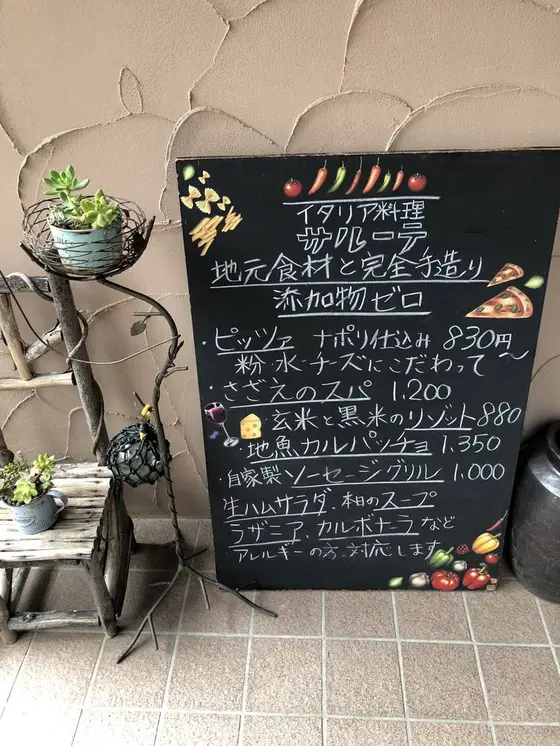 イタリア料理
サルーテ
地元食材と完全手造り
添加物ゼロ
・ピッツァ ナポリ仕込み 830円〜
粉・水・チーズにこだわって
・さざえのスパ 1.200
玄米と黒米のリゾット880
・地魚カルパッチョ 1.350
・自家製ソーセージグリル 1.000
生ハムサラダ、本日のスープ
ラザニア、カルボナーラなど
アレルギーの方、対応します